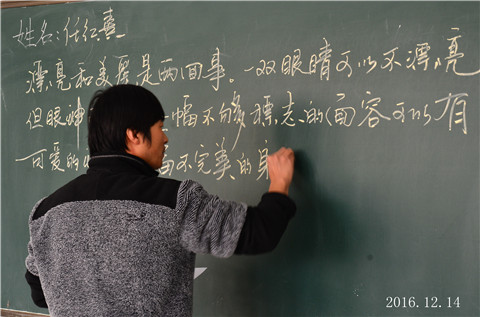 姓名:任红
漂亮和美丽是两回事。一双眼睛可以不漂亮
但眼神 幅不够标志的面容可以有
可爱的 不完美的身
2016.12.14